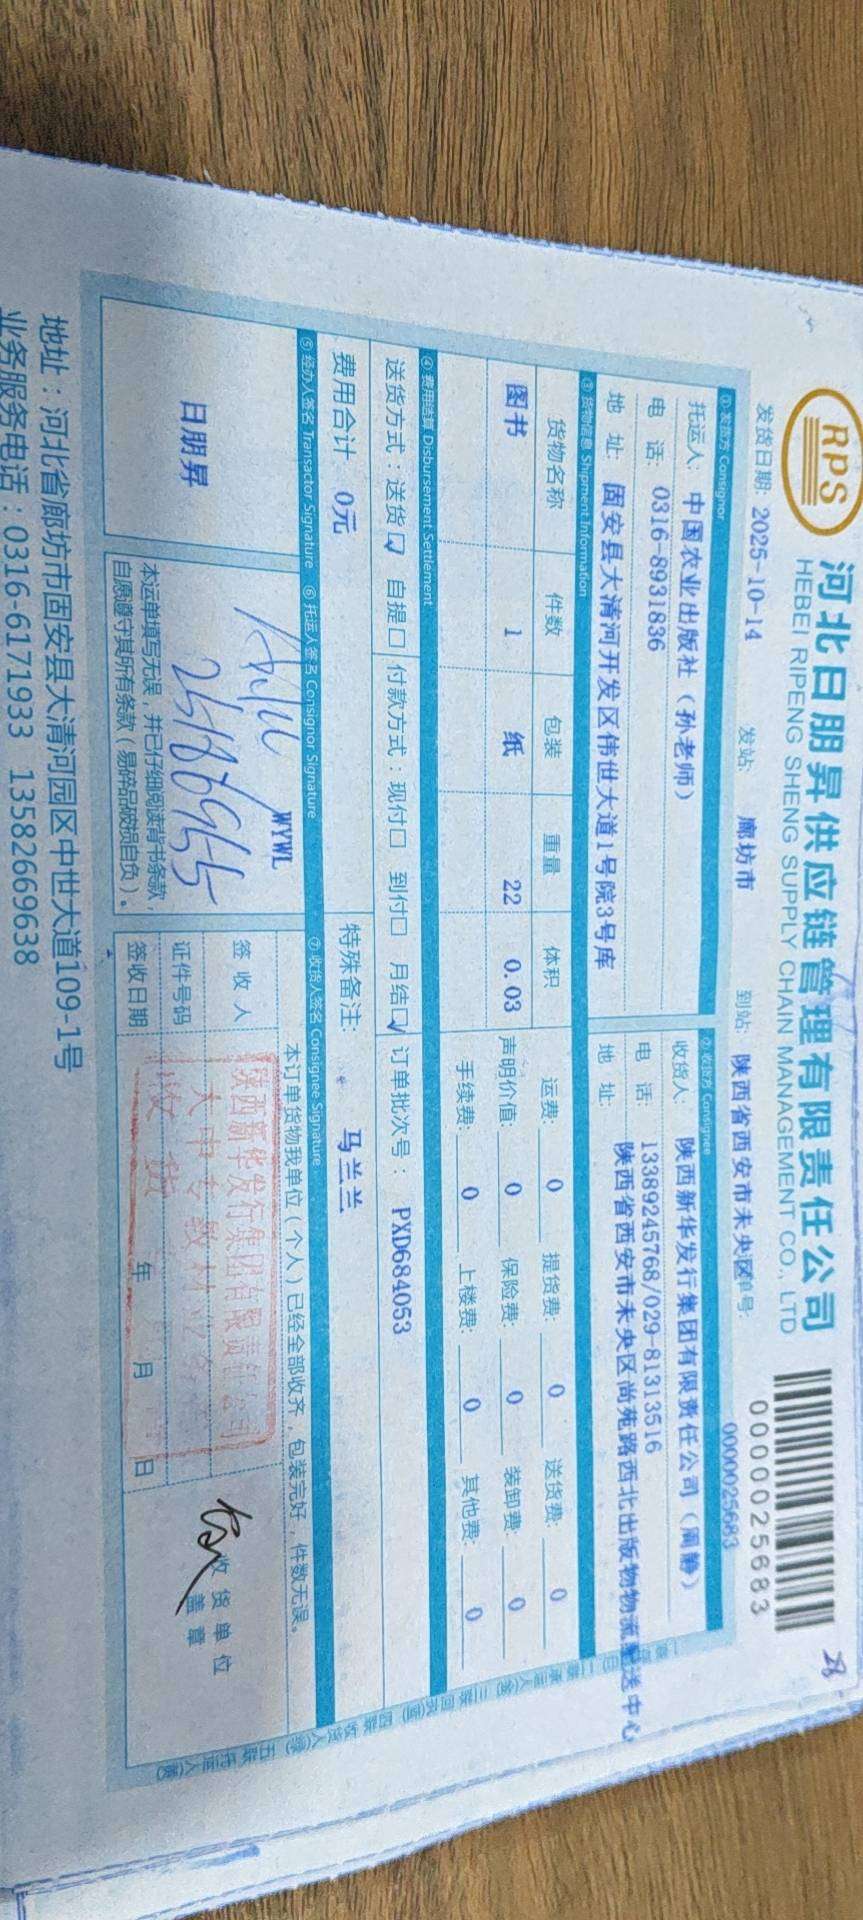 RPS
河北日朋昇供应链管理有限责任公司
HEBEI RIPENG SHENG SUPPLY CHAIN MANAGEMENT CO., LTD
0000025683
发货日期: 2025-10-14 发站: 廊坊市 到站: 陕西省西安市未央区 单号: 0000025683
①发货方 Consignor ②收货方 Consignee
托运人: 中国农业出版社（孙老师） 收货人: 陕西新华发行集团有限责任公司（周静）
电 话: 0316-8931836 电 话: 13389245768/029-81313516
地 址: 固安县大清河开发区伟世大道1号院3号库 地 址: 陕西省西安市未央区尚苑路西北出版物物流配送中心
③货物信息 Shipment Information
货物名称 件数 包装 重量 体积 运费: 0 提货费: 0 送货费: 0
图书 1 纸 22 0.03 声明价值: 0 保险费: 0 装卸费: 0
手续费: 0 上楼费: 0 其他费: 0
④费用结算 Disbursement Settlement
送货方式：送货☑ 自提□ 付款方式：现付□ 到付□ 月结☑ 订单批次号： PXD684053
费用合计 0元 特殊备注: 马兰兰
⑤经办人签名 Transactor Signature ⑥托运人签名 Consignor Signature ⑦收货人签名 Consignee Signature
日朋昇
WYWL
本运单填写无误，并已仔细阅读背书条款，
自愿遵守其所有条款（易碎品破损自负）。
本订单货物我单位（个人）已经全部收齐，包装完好，件数无误。
签 收 人
证件号码
签收日期 年 月 日
收货单位
盖章
陕西新华发行集团有限责任公司
大中专教材
收货
地址：河北省廊坊市固安县大清河园区中世大道109-1号
业务服务电话：0316-6171933 13582669638